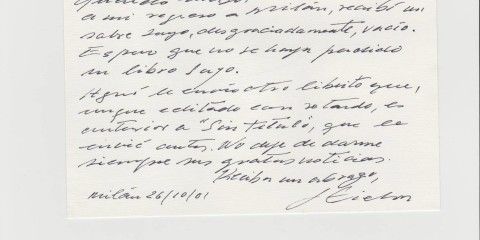 a mi regreso a Milán, recibí un
sobre suyo, desgraciadamente, vacío.
Espero que no se haya perdido
un libro suyo.
Aquí le envío otro librito que,
aunque editado con retardo, es
anterior a "Sin título", que le
envié antes. No deje de darme
siempre sus gratas noticias.
Reciba un abrazo,
Milán 26/10/01